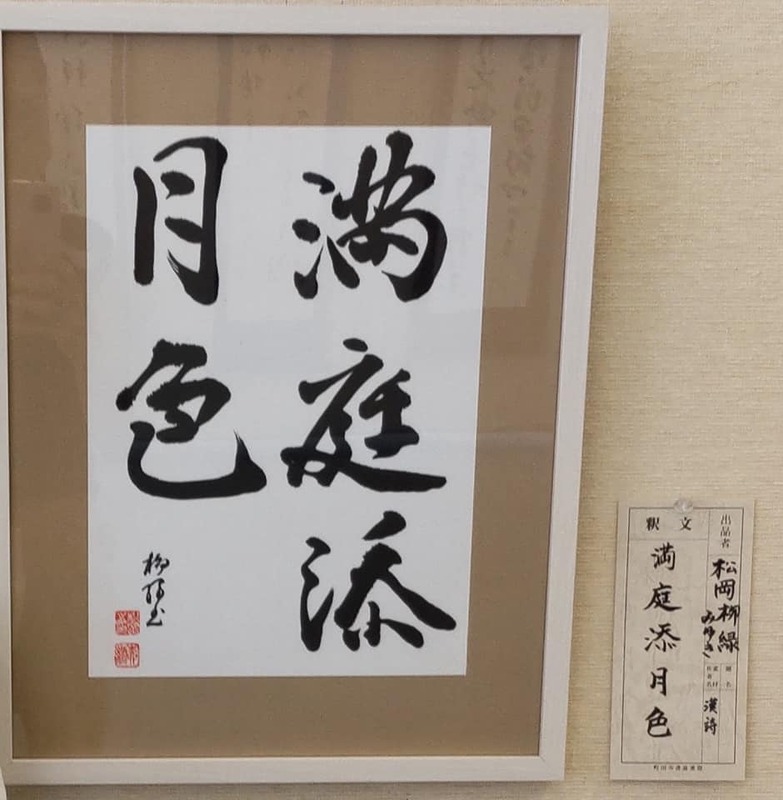 満庭添
月色
出品者
松岡柳緑
みゆき
題名
漢詩
釈文
満庭添月色